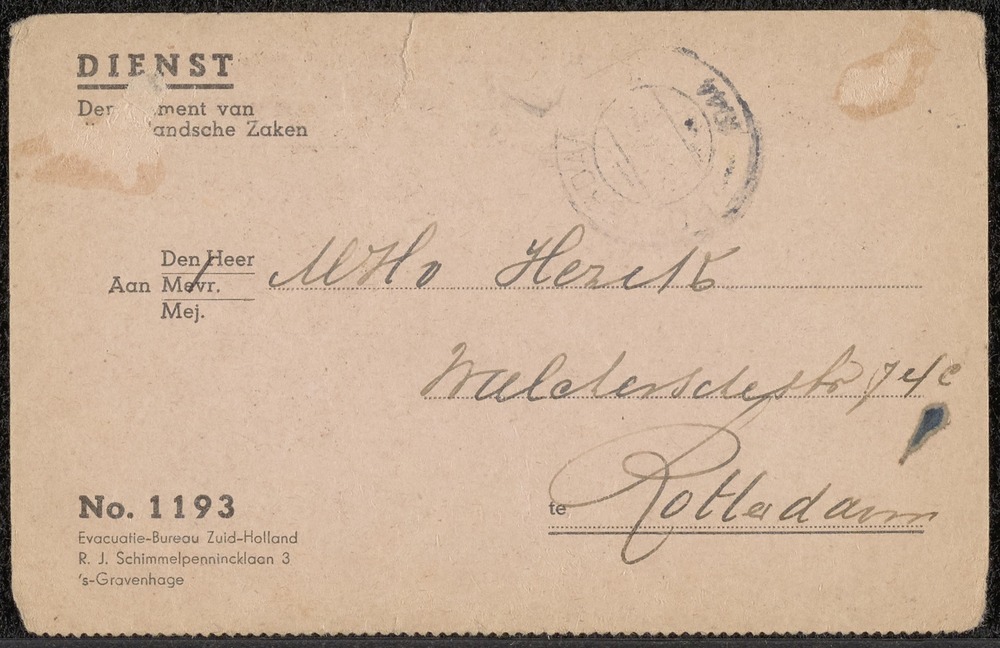 DIENST
ment van
andsche Zaken
Den Heer
Aan Mevr.
Mej.
Walchersche str 74c
te Rotterdam
No. 1193
Evacuatie-Bureau Zuid-Holland
R. J. Schimmelpennincklaan 3
's-Gravenhage